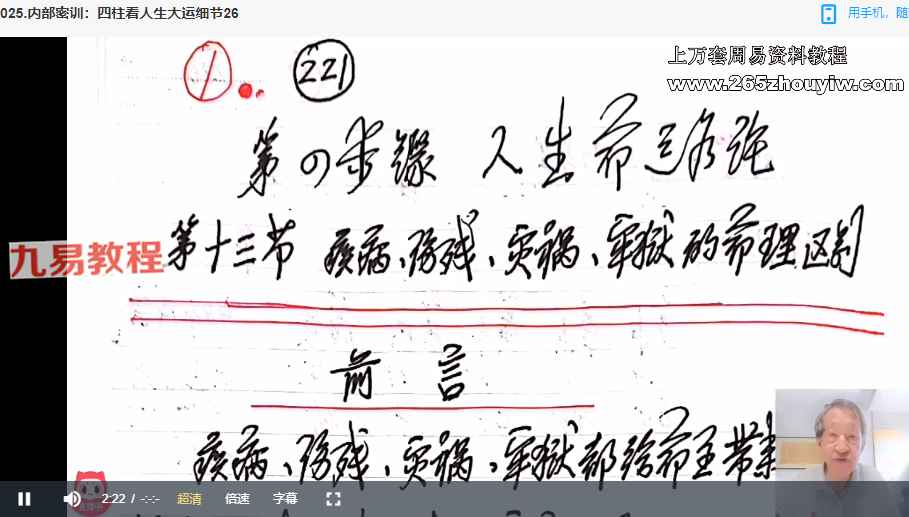 025.内部密训：四柱看人生大运细节26
用手机，随
上万套周易资料教程
www.265zhouyiw.com
1
221
第四步骤 人生命运名论
九易教程
第十三节 疾病、伤残、灾祸、牢狱的命理区别
前言
疾病、伤残、灾祸、牢狱都给命主带来
2:22 / -:-:-
超清
倍速
字幕